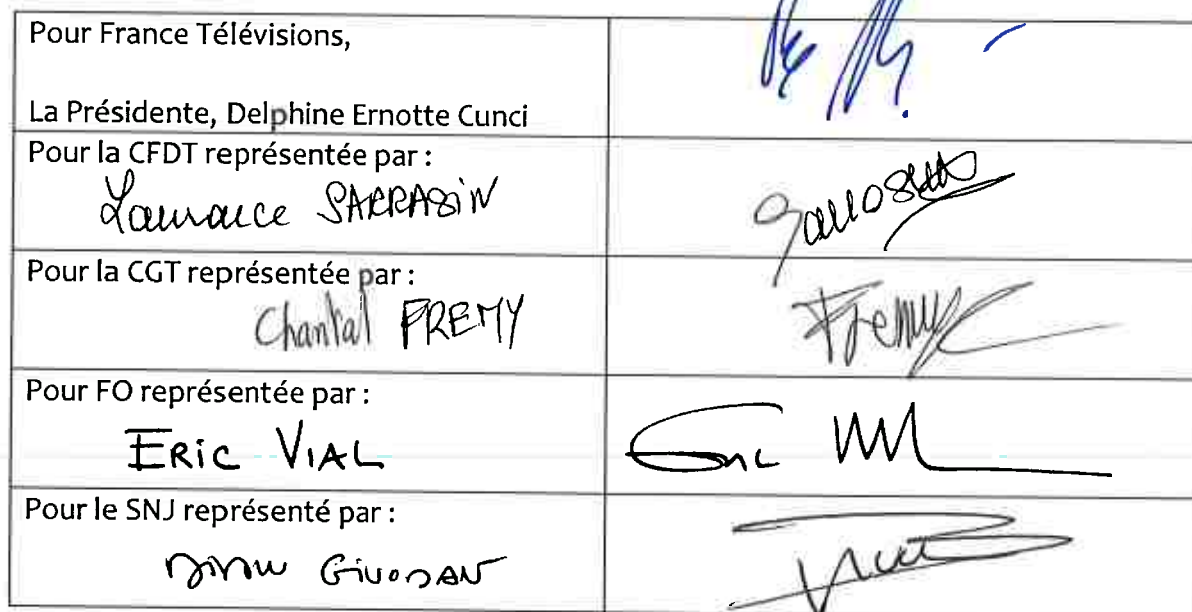 Pour France Télévisions,
La Présidente, Delphine Ernotte Cunci
Pour la CFDT représentée par :
Laurance SARRASIN
Pour la CGT représentée par :
Chantal FREMY
Fremy
Pour FO représentée par :
ERIC VIAL
Eric
Pour le SNJ représenté par :